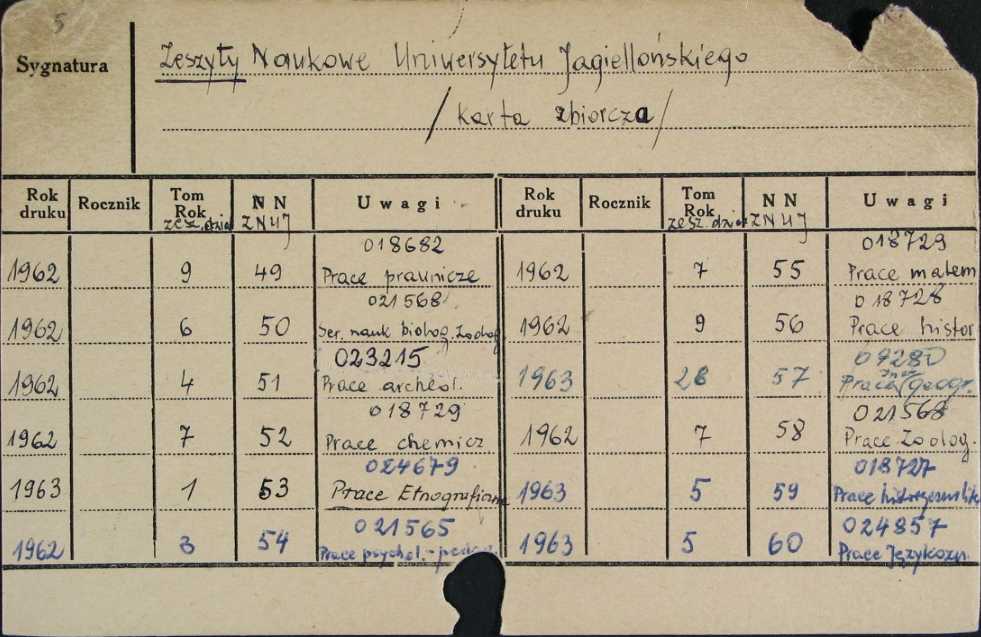 5
Sygnatura
Zeszyty Naukowe Uniwersytetu Jagiellońskiego
/karta zbiorcza/
Rok druku Rocznik Tom Rok zesz. dział NN ZNUJ Uwagi
1962 9 49 018682 Prace prawnicze
1962 6 50 021568 Ser. nauk biolog. Zoolog
1962 4 51 023215 Prace archeol.
1962 7 52 018729 Prace chemicz
1963 1 53 024679 Prace Etnograficzne
1962 3 54 021565 Prace psychol.-
Rok druku Rocznik Tom Rok zesz. dział NN ZNUJ Uwagi
1962 7 55 018729 Prace matem
1962 9 56 018728 Prace histor
1963 57 Prace geogr.
1962 7 58 021568 Prace Zoolog.
1963 5 59 018727 Prace
1963 5 60 024857 Prace Językozn.